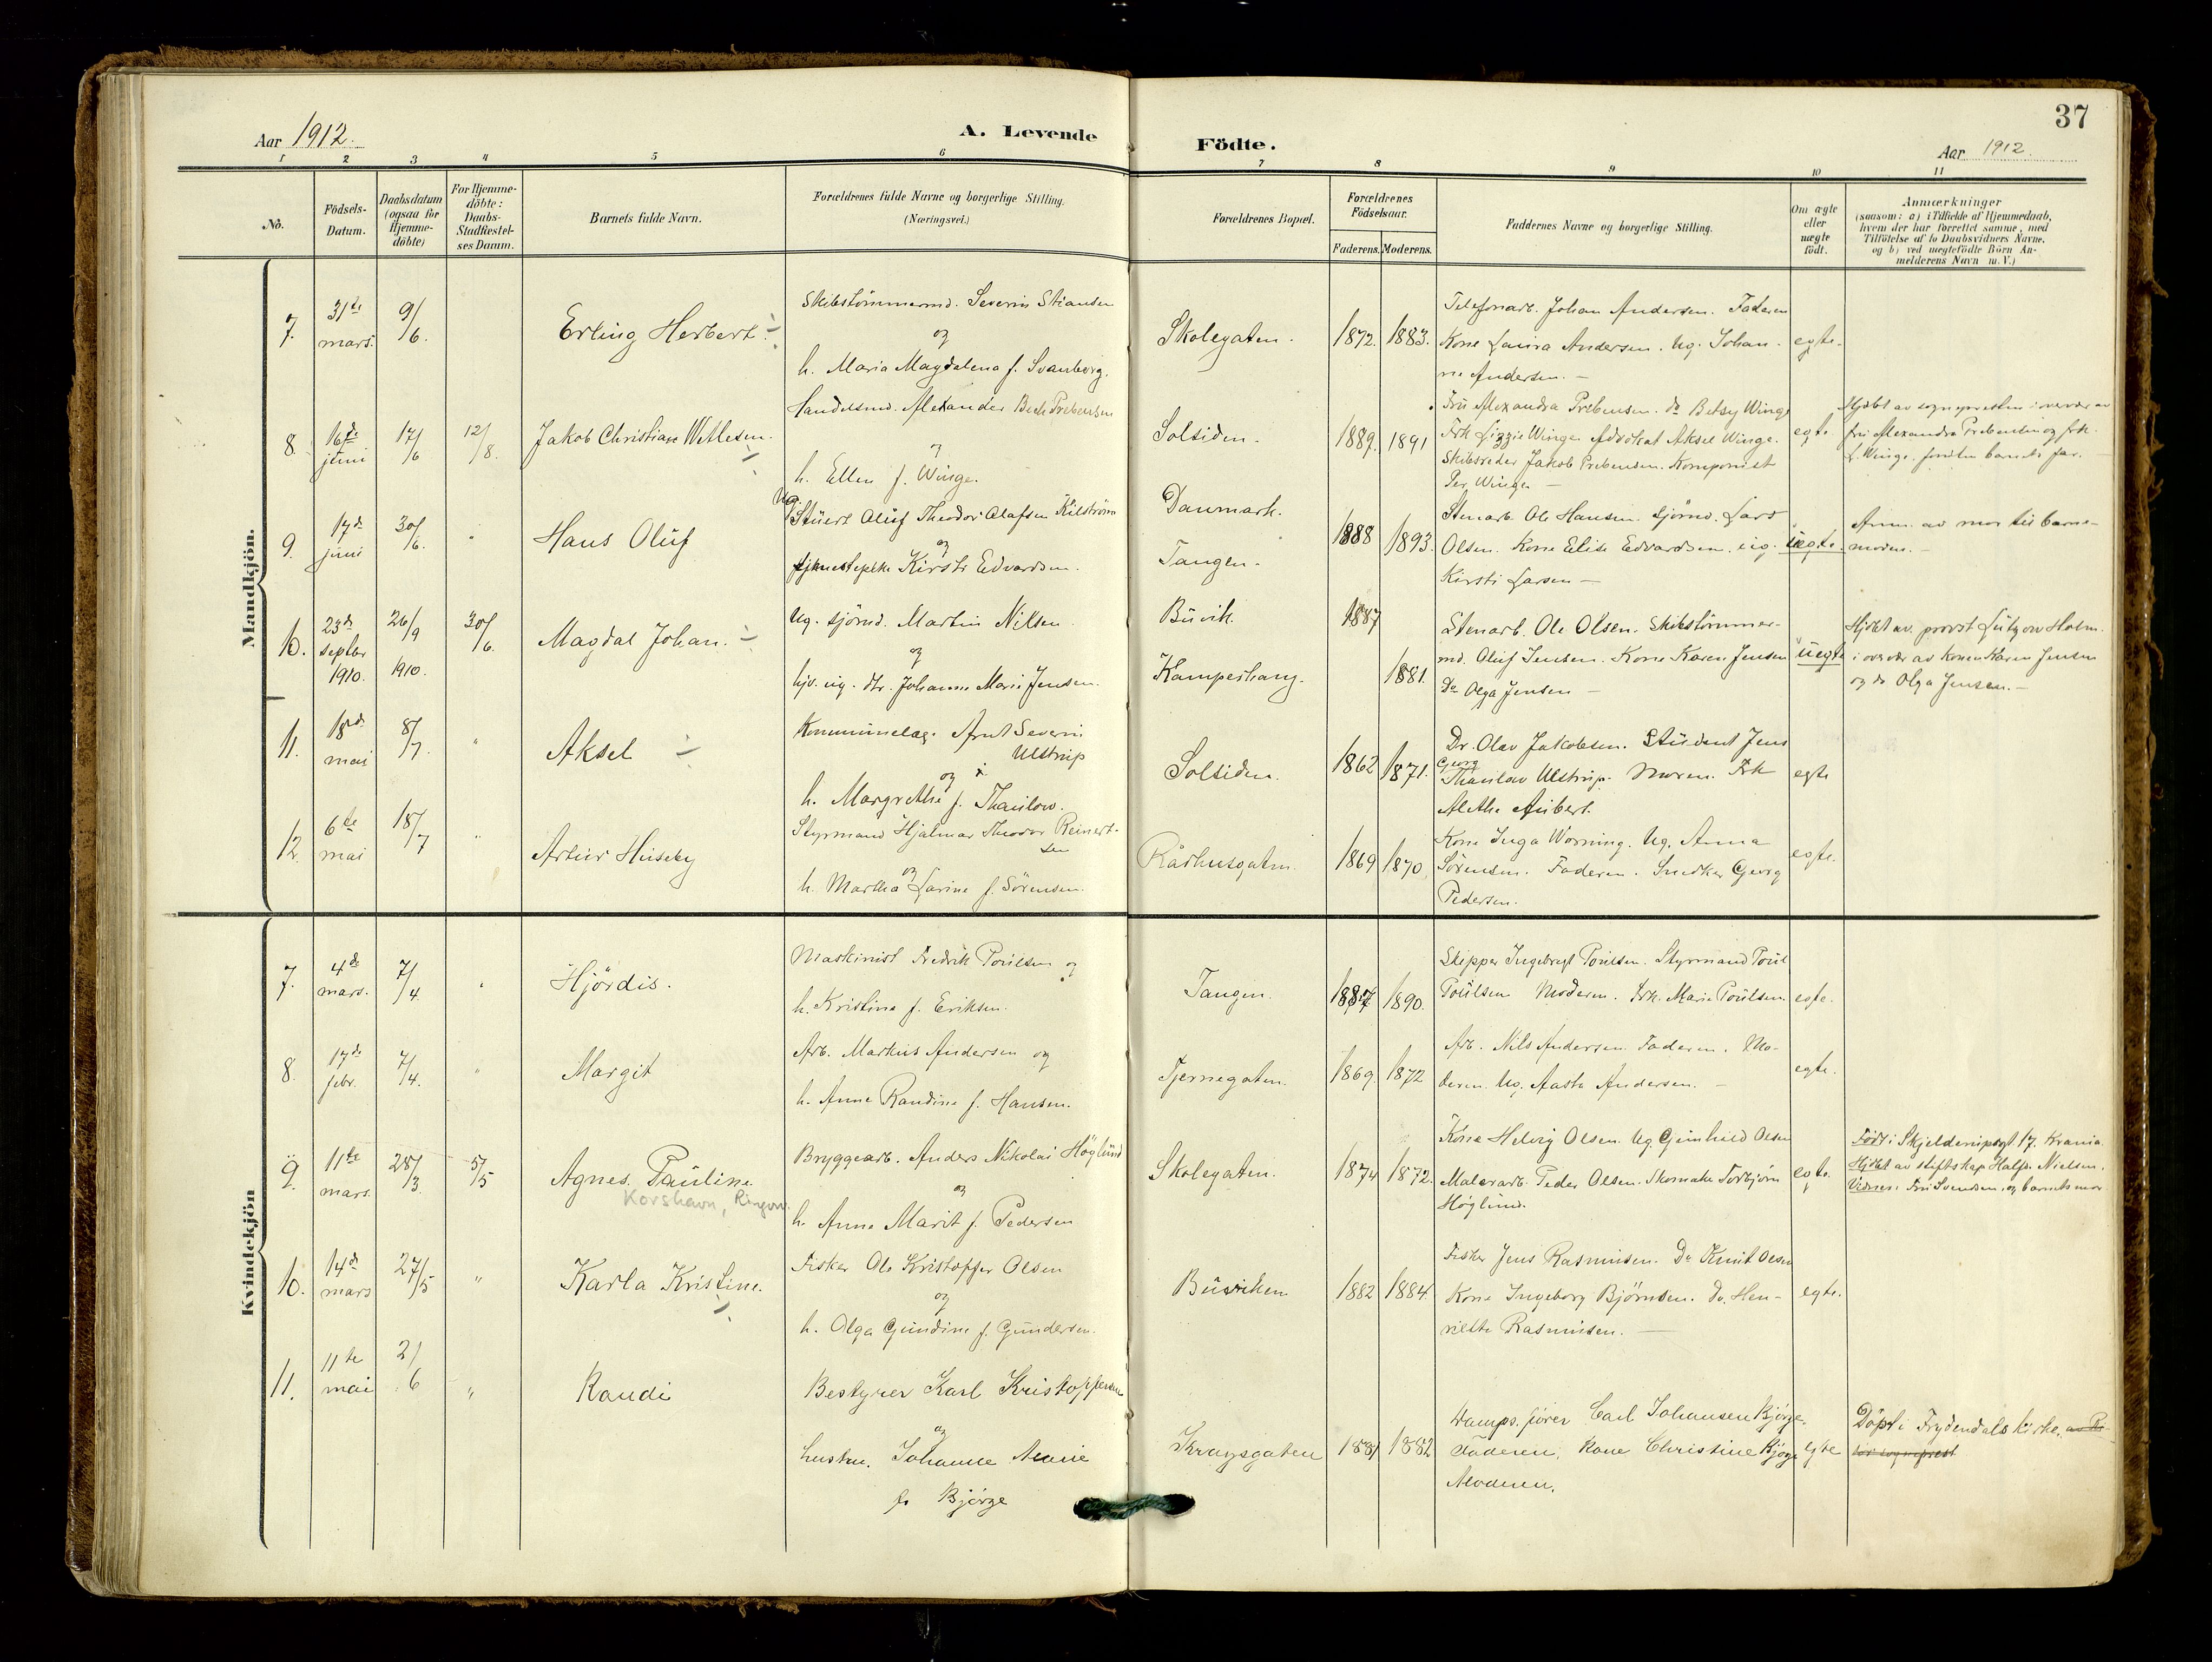 37
Aar 1912.
A. Levende
Födte.
Aar 1912.
1 2 3 4 5 6 7 8 9 10 11
No.
Födsels-Datum.
Daabsdatum (ogsaa for Hjemme-döbte)
For Hjemme-döbte: Daabs-Stadfæstel-ses Datum.
Barnets fulde Navn.
Forældrenes fulde Navne og borgerlige Stilling. (Næringsvei.)
Forældrenes Bopæl.
Forældrenes Födselsaar.
Faderens. Moderens.
Faddernes Navne og borgerlige Stilling.
Om ægte eller uægte födt.
Anmærkninger
(saasom: a) i Tilfælde af Hjemmedaab,
hvem der har forrettet samme, med
Tilföielse af to Daabsvidners Navne,
og b) ved uægtefödte Börn An-
melderens Navn m. V.)
Mandkjön.
7. 31te mars. 9/6. Erling Herbert.
Skibstömmermd. Severin Stiansen
og
h. Maria Magdalena f. Svanberg.
Skolegaten. 1872. 1883.
Telefonarb. Johan Andersen. Faderen
Kone Laura Andersen. Ug. Johan-
ne Andersen. —
egte.
8. 16de juni 17/6 12/8. Jakob Christian Wetlesen.
Handelsmd. Alexander Bech Prebensen
og
h. Ellen f. Winge.
Solsiden. 1889. 1891
Fru Alexandra Prebensen. do Betsy Winge
Frk Lizzie Winge. Advokat Aksel Winge.
Skibsreder Jakob Prebensen. Komponist
Per Winge —
egte.
Hjdbt av sognepresten i overvær av
fru Alexandra Prebensen og frk.
L. Winge, foruten barnets far. —
9. 17de juni 30/6. " Hans Oluf
Ug. Stuert Oluf Theodor Olafsen Kilström
og
tjenestepike Kirsti Edvardsen.
Danmark.
Tangen.
1888 1893.
Stenarb. Ole Hansen. Sjömd. Lars
Olsen. Kone Elise Edvardsen. ug.
Kirsti Larsen —
uegte.
Anm. av mor til barne-
moren. —
10. 23de septbr 1910. 26/9 1910. 30/6. Magdal Johan.
Ug. sjömd. Martin Nilsen
og
hjv. ug. dtr. Johanne Marie Jensen.
Buvik.
Kamperhaug.
1887
1881.
Stenarb. Ole Olsen. Skibstömmer-
md. Oluf Jensen. Kone Karen Jensen
Do Olga Jensen —
uegte
Hjdbt av. provst Lützow Holm.
i overvær av konen Karen Jensen
og do Olga Jensen. —
11. 18de mai 8/7. " Aksel
Kommunelæge Arnt Severin
Ulstrup
og
h. Margrethe f. Thaulow.
Solsiden. 1862 1871.
Dr. Olav Jakobsen. Student Jens
Georg
Thaulow Ulstrup. Moren. Frk
Alethe Aubert.
egte
12. 6te mai 18/7 " Artur Huseby
Styrmand Hjalmar Theodor Reinert-
sen
og
h. Martha Larine f. Sörensen.
Rådhusgaten 1869 1870.
Kone Inga Worning. Ug. Anna
Sörensen. Faderen. Snedker Georg
Pedersen.
egte.
Kvindekjön
7. 4de mars. 7/4. Hjördis.
Maskinist Fredrik Poulsen og
h. Kristine f. Eriksen.
Tangen. 1887 1890.
Skipper Ingebregt Poulsen. Styrmand Poul
Poulsen Moderen. Frk. Marie Poulsen.
egte.
8. 17de febr. 7/4. " Margit
Arb. Markus Andersen og
h. Anne Randine f. Hansen.
Tjernegaten. 1869. 1872
Arb. Nils Andersen. Faderen. Mo-
deren. Ug. Aaste Andersen. —
egte.
9. 11te mars. 28/3. 5/5 Agnes Pauline.
Korshavn, Ringv.
Bryggearb. Anders Nikolai Höglund
og
h. Anne Marit f. Pedersen
Skolegaten. 1874 1872.
Kone Helvig Olsen. Ug Gunhild Olsen
Malerarb. Peder Olsen. Skomaker Torbjörn
Höglund.
egte.
Födt i Skjelderupsgt. 17. Krania.
Hjdbt av stiftskap. Halfd. Nielsen.
Vidner: Fru Svendsen, og barnets mor
10. 14de mars 27/5 " Karla Kristine.
Fisker Ole Kristoffer Olsen
og
h. Olga Gundine f. Gundersen.
Buviken 1882 1884.
Fisker Jens Rasmussen. Do Knut Olsen
Kone Ingeborg Björnsen. Do. Hen-
riette Rasmussen. —
egte.
11. 11te mai 2/6 " Randi
Bestyrer Karl Kristoffersen
og
hustru. Johanne Marie
f. Bjørge
Kragsgaten 1881 1882
Damps. fører Carl Johansen Bjørge.
Faderen, Kone Christine Bjørge
Moderen.
egte
Döpt i Frydendals kirke.